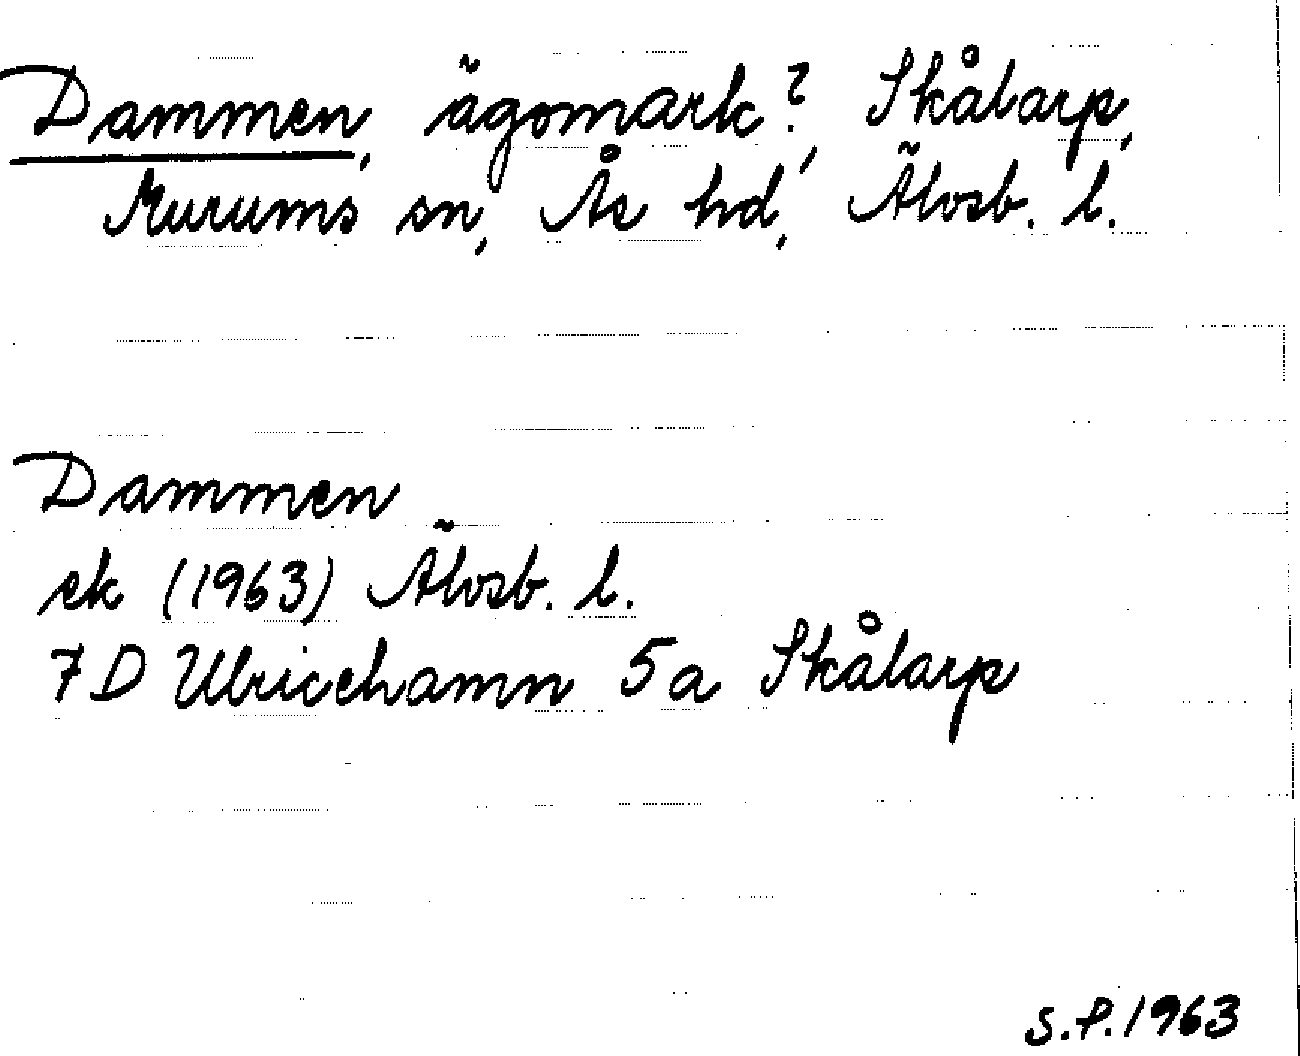 Dammen, ägomark?, Skålarp,
Murums sn, Ås hd, Älvsb. l.
Dammen
ek (1963) Älvsb. l.
7D Ulricehamn 5a Skålarp
S.P. 1963